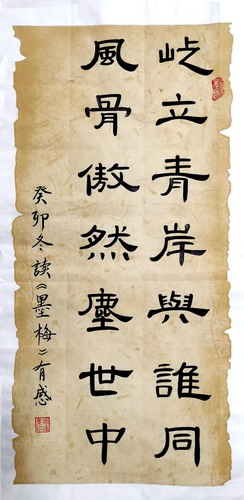 屹立青岸與誰同
風骨傲然塵世中
癸卯冬讀《墨梅》有感